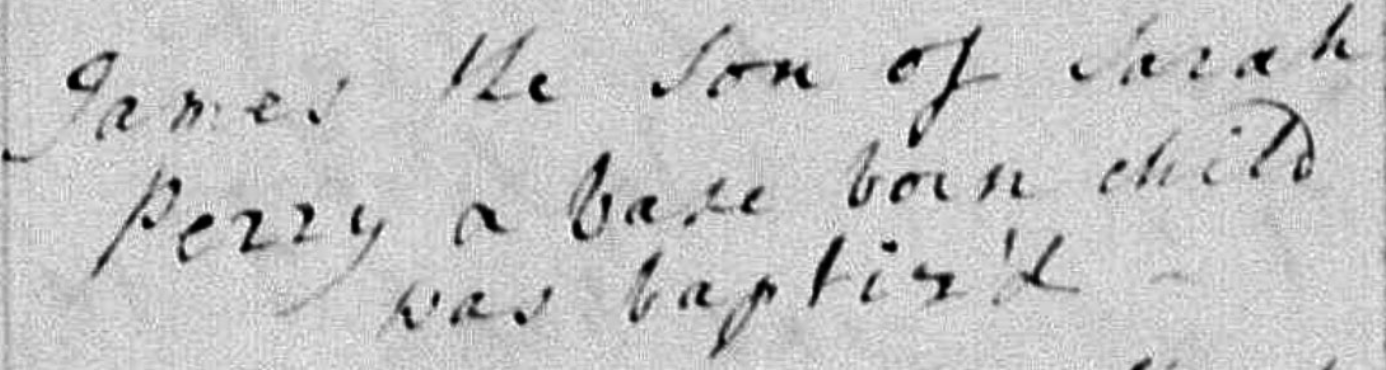 James the Son of Sarah
Perry a base born child
was baptiz'd -